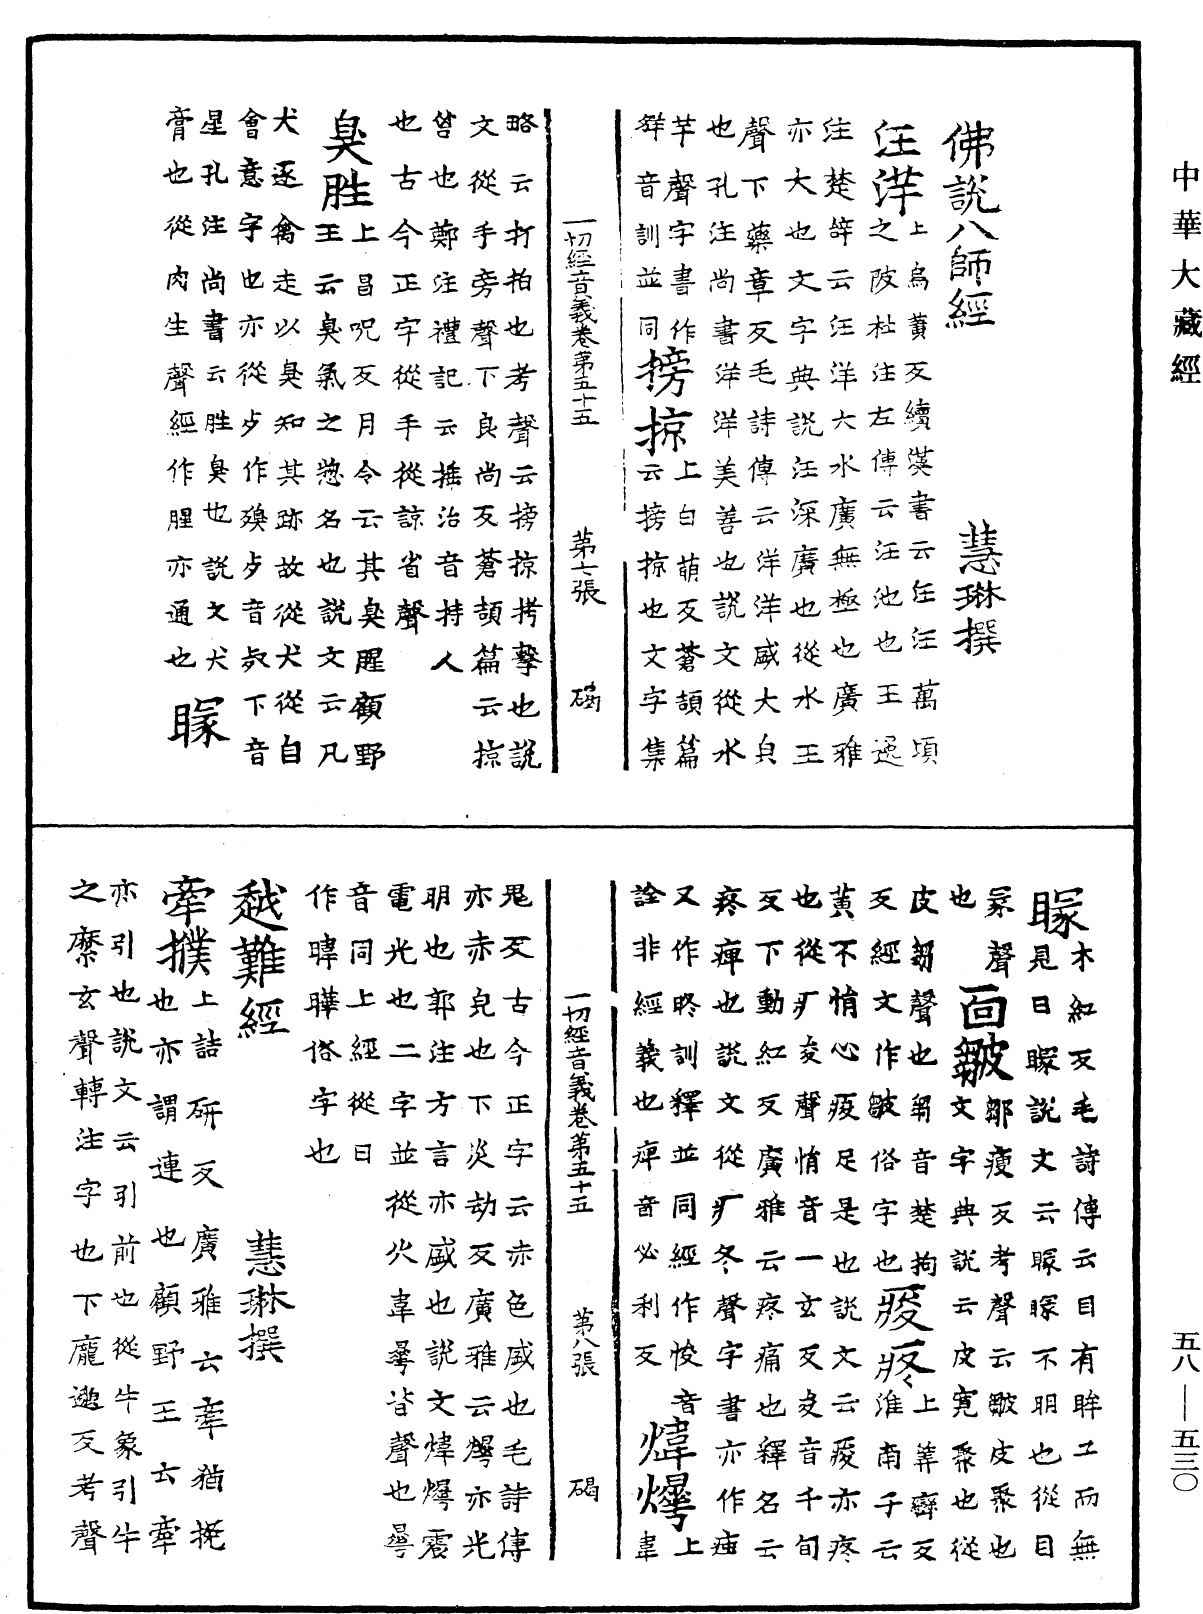 中華大藏經
佛說八師經　慧琳撰
汪洋上烏黃反續漢書云汪汪萬頃
之陂杜注左傳云汪池也王逸
注楚辞云汪洋大水廣無極也廣雅
亦大也文字典說汪深廣也從水王
聲下藥章反毛詩傳云洋洋盛大皃
也孔注尚書洋洋美善也說文從水
芊聲字書作
𦍑音訓並同搒掠上白萌反蒼頡篇
云搒掠也文字集
一切經音義卷第五十五　第七張　碣
略云打拍也考聲云搒掠拷擊也說
文從手旁聲下良尚反蒼頡篇云掠
笞也鄭注禮記云捶治音持人
也古今正字從手從諒省聲
臭胜上昌呪反月令云其臭腥顧野
王云臭氣之惣名也說文云凡
犬逐禽走以臭知其跡故從犬從自
會意字也亦從歺作殠歺音𣦵下音
星孔注尚書云胜臭也說文犬
膏也從肉生聲經作腥亦通也　矇
矇木紅反毛詩傳云目有眸子而無
見曰矇說文云矇矇不明也從目
冡聲面皺鄒瘦反考聲云皺皮聚也
文字典說云皮寬聚也從
皮芻聲也芻音楚拘
反經文作皷俗字也痠疼上筭霹反
淮南子云
黃不悁心痠足是也說文云痠亦疼
也從疒夋聲悁音一玄反夋音千旬
反下動紅反廣雅云疼痛也釋名云
疼痺也說文從疒冬聲字書亦作痋
又作㾊訓釋並同經作悛音
詮非經義也痺音必利反煒爗上
韋
鬼反古今正字云亦色盛也毛詩傳
亦赤皃也下炎劫反廣雅云爗亦光
明也郭注方言亦盛也說文煒爗震
電光也二字並從火韋曅皆聲也曅
音同上經從日
作暐曄俗字也
越難經　慧琳撰
牽撲上詰研反廣雅云牽猶挽
也亦謂連也顧野王云牽
亦引也說文云引前也從牛象引牛
之縻玄聲轉注字也下龐邈反考聲
一切經音義卷第五十五　第八張　碣
五八—五三〇